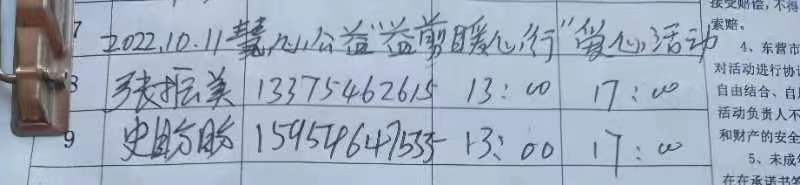 7 2022.10.11慧心公益"益剪暖心行"爱心活动
8 张振美 13375462615 13:00 17:00
9 史盼盼 15954647535 13:00 17:00
接受赔偿,不得
索赔。
4、东营市
对活动进行协议
自由结合、自
活动负责人不
和财产的安全
5、未成年
在在承诺书签